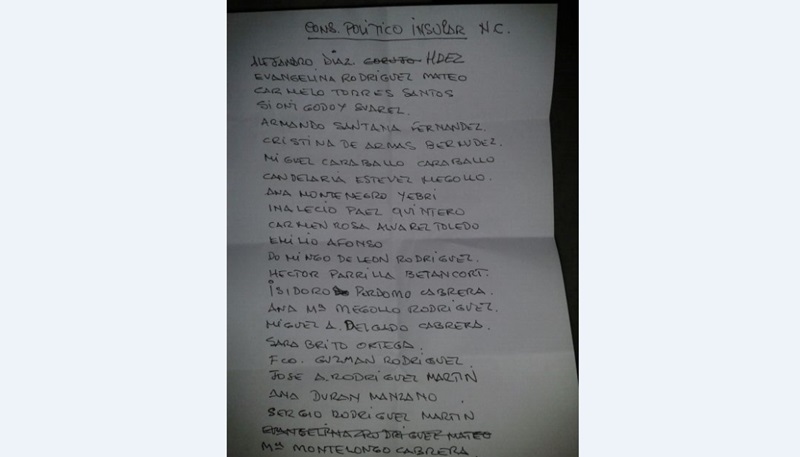 CONS. POLÍTICO INSULAR N.C.
ALEJANDRO DÍAZ HDEZ
EVANGELINA RODRÍGUEZ MATEO
CARMELO TORRES SANTOS
SIONI GODOY SUAREZ.
ARMANDO SANTANA FERNANDEZ.
CRISTINA DE ARMAS BERMUDEZ.
MIGUEL CARABALLO CARABALLO
CANDELARIA ESTEVEZ MEGOLLO.
ANA MONTENEGRO YEBRI
INALECIO PAEZ QUINTERO
CARMEN ROSA ALVAREZ TOLEDO
EMILIO AFONSO
DOMINGO DE LEON RODRIGUEZ.
HECTOR PARRILLA BETANCORT.
ISIDORO PERDOMO CABRERA.
ANA Mª MEGOLLO RODRIGUEZ.
MIGUEL A. DELGADO CABRERA.
SARA BRITO ORTEGA.
FCO. GUZMAN RODRIGUEZ.
JOSE A. RODRIGUEZ MARTIN
ANA DURAN MANZANO
SERGIO RODRIGUEZ MARTIN
EVANGELINA RODRIGUEZ MATEO
Mª MONTELONGO CABRERA.